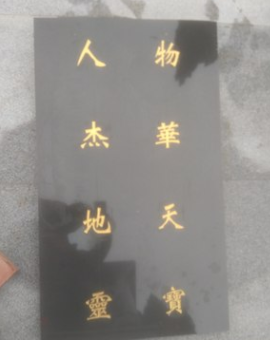 物華天寶
人杰地靈